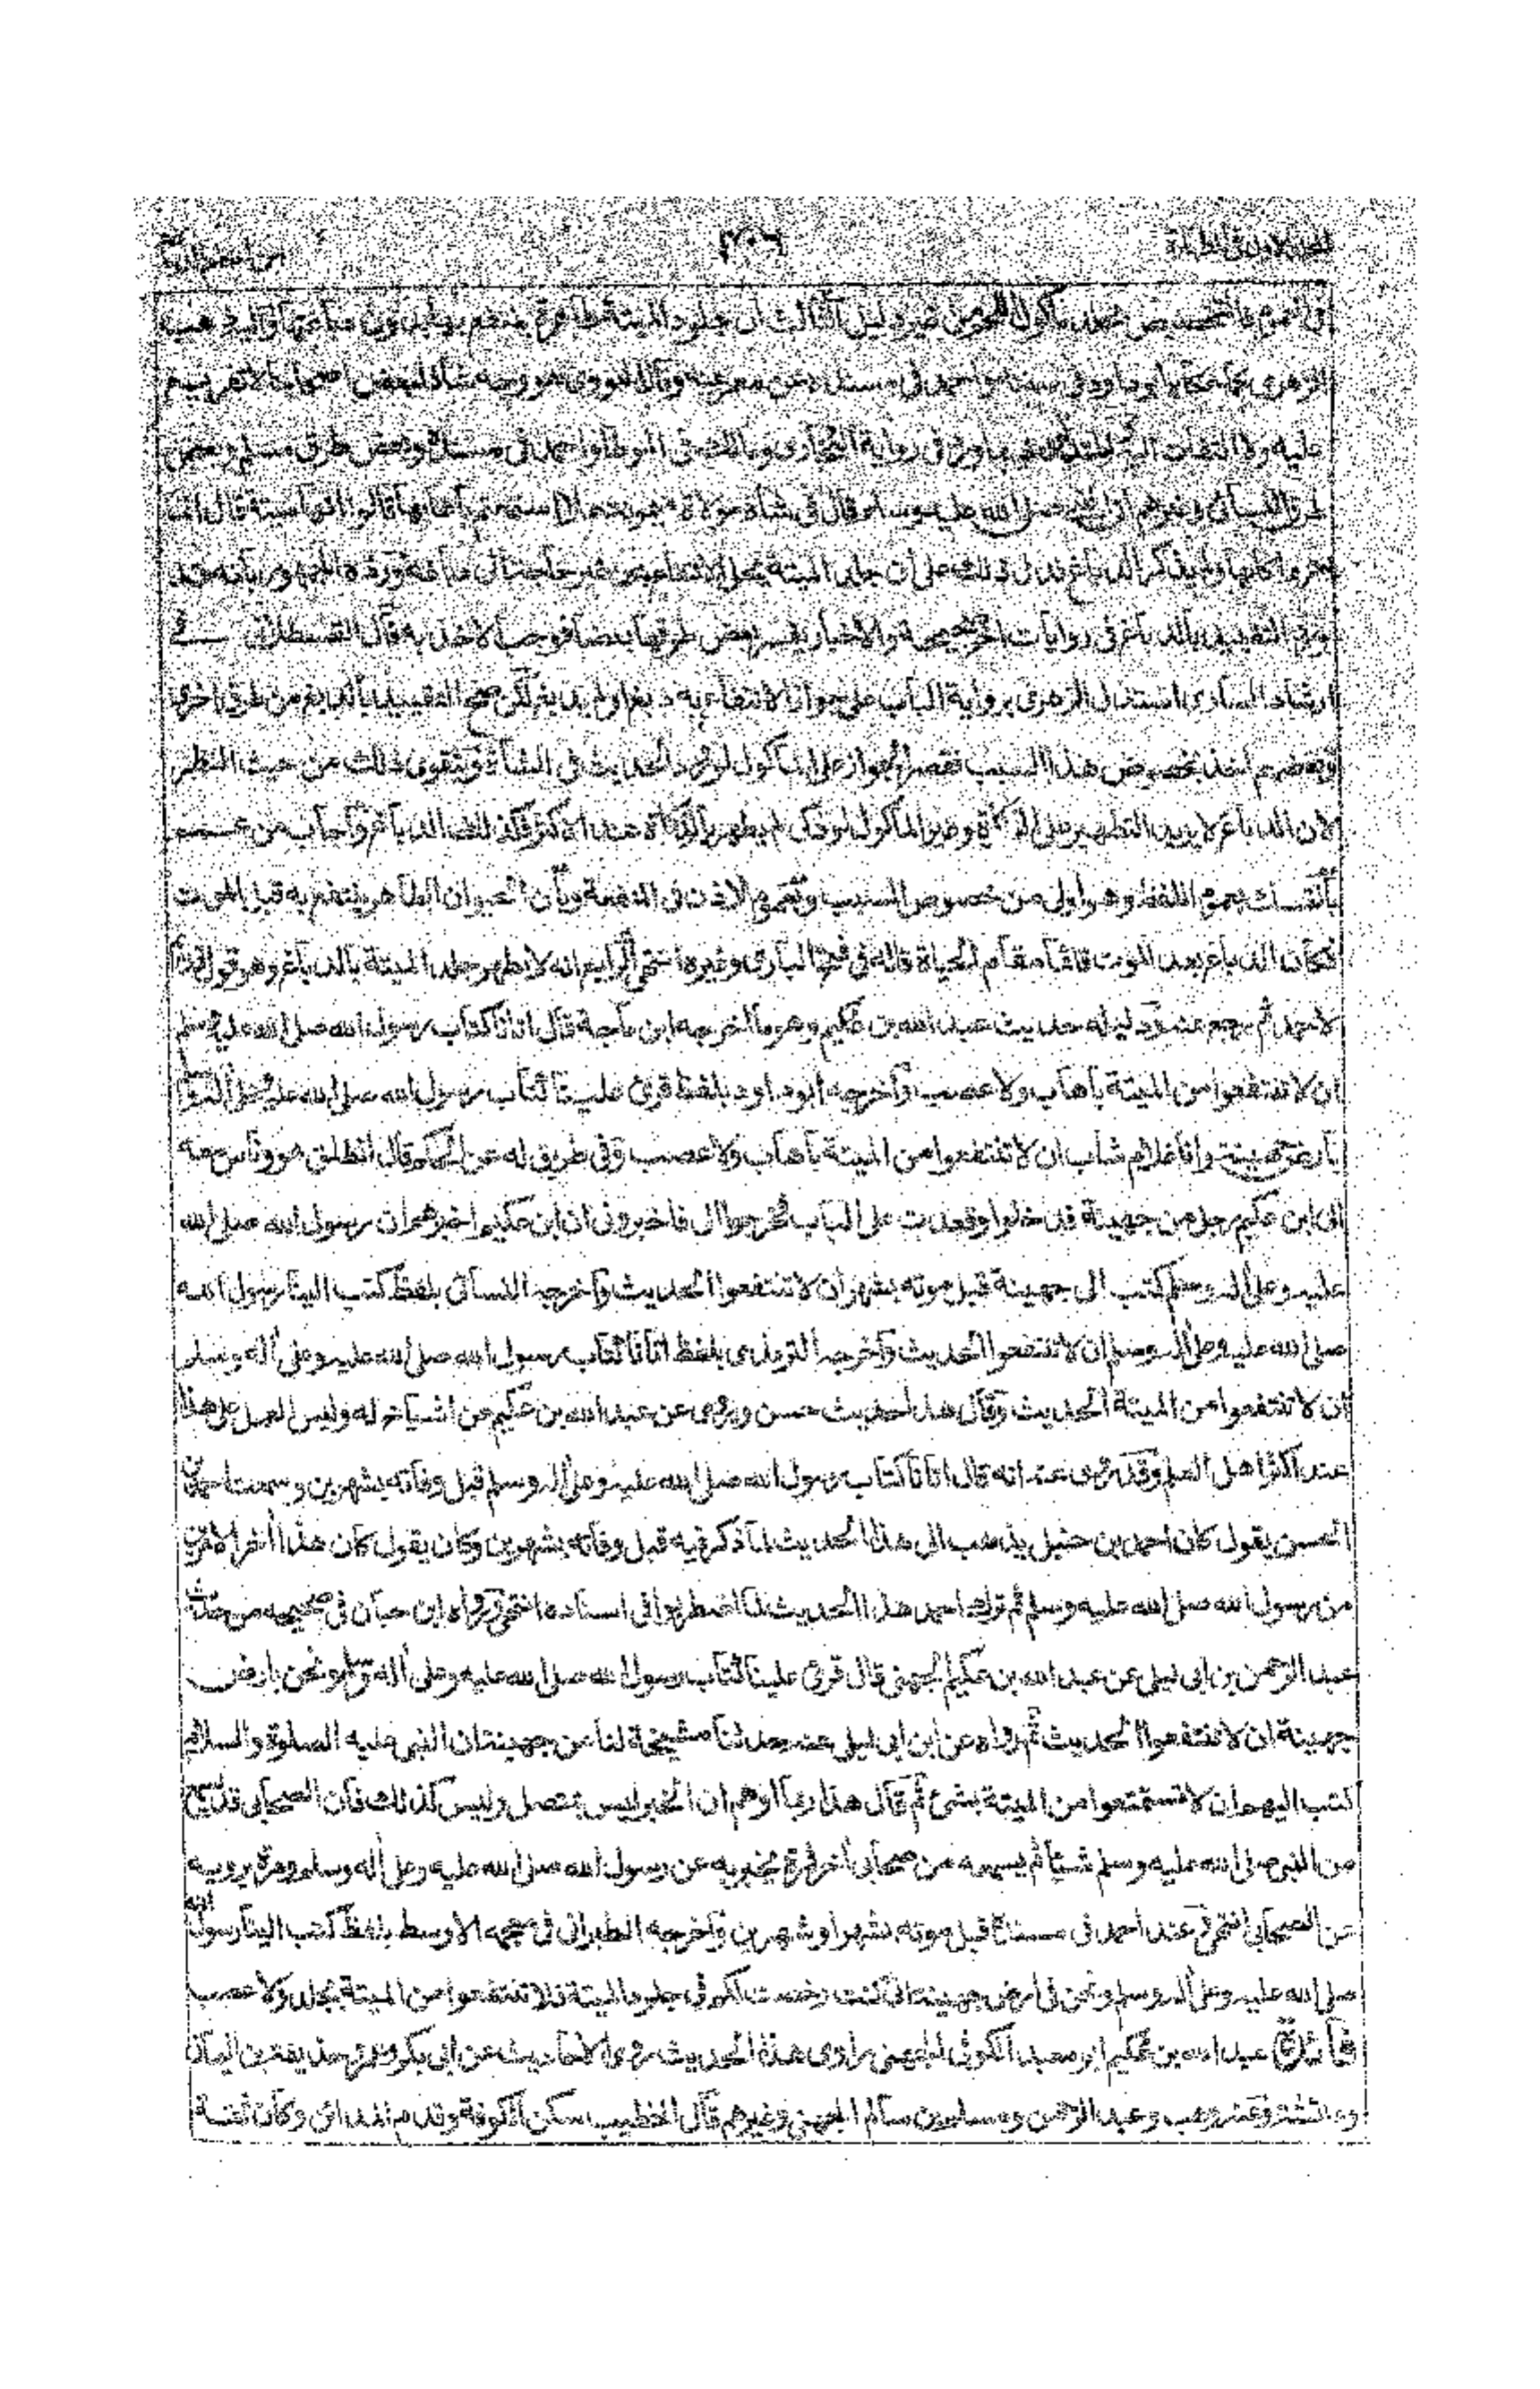 جلد مأكول اللحم من غير دليل الثالث أن جلود الميتة طاهرة ينتفع بها بدون دباغتها وإليه ذهب
الزهري كما حكاه أبو داود في سننه وأحمد في مسنده عن معمر عنه وقال النووي هو وجه شاذ لبعض أصحابنا لا تفريع
عليه ولا التفات إليه في رواية البخاري ومالك في الموطأ وأحمد في مسنده وبعض طرق مسلم وبعض
طرق النسائي وغيرهم أن النبي صلى الله عليه وسلم قال في شاة مولاة ميمونة هلا استمتعتم بإهابها قالوا إنها ميتة قال إنما
حرم أكلها ولم يذكر الدباغ فدل ذلك على أن جلد الميتة يحل الانتفاع به من غير حاجة إلى دباغه ورده الجمهور بأنه قد
ورد التقييد بالدباغ في روايات أخر صحيحة والأخبار يفسر بعض طرقها بعضا فوجب الأخذ به قال القسطلاني في
ارشاد الساري استدل الزهري برواية الباب على جواز الانتفاع به دبغ او لم يدبغ لكن صح التقييد بالدباغ من طرق اخرى
وبعضهم أخذ بخصوص هذا السبب فقصر الجواز على المأكول لورود الحديث في الشاة ويتقوى ذلك من حيث النظر
لان الدباغ لا يزيد التطهير على الذكاة وغير المأكول لو ذكي لم يطهر بالذكاة عند الاكثر فكذلك الدباغ وأجاب من عمم
بالتمسك بعموم اللفظ وهو أولى من خصوص السبب وبعموم الاذن في المنفعة وبأن الحيوان الطاهر ينتفع به قبل الموت
فكان الدباغ بعد الموت قائما مقام الحياة قاله في فتح الباري وغيره انتهى الرابع انه لا يطهر جلد الميتة بالدباغ وهو قول
لاحمد ثم رجع عنه ودليله حديث عبد الله بن عكيم وهو ما اخرجه ابن ماجة قال اتانا كتاب رسول الله صلى الله عليه وسلم
ان لا تنتفعوا من الميتة بأهاب ولا عصب وأخرجه ابو داود بلفظ قرئ علينا كتاب رسول الله صلى الله عليه وعلى آله وسلم
بأرض جهينة وانا غلام شاب ان لا تنتفعوا من الميتة باهاب ولا عصب وفي طريق له عن الحكم قال انطلق هو وناس معه
الى ابن عكيم رجل من جهينة فدخلوا وقعدت على الباب فخرجوا الى فاخبروني ان ابن عكيم اخبرهم ان رسول الله صلى الله
عليه وعلى آله وسلم كتب الى جهينة قبل موته بشهر ان لا تنتفعوا الحديث وأخرجه النسائي بلفظ كتب الينا رسول الله
صلى الله عليه وعلى آله وسلم ان لا تنتفعوا الحديث وأخرجه الترمذي بلفظ اتانا كتاب رسول الله صلى الله عليه وعلى آله وسلم
ان لا تنتفعوا من الميتة الحديث وقال هذا حديث حسن ويروى عن عبد الله بن عكيم عن اشياخ له وليس العمل على هذا
عند اكثر اهل العلم وقد روى عنه انه قال اتانا كتاب رسول الله صلى الله عليه وعلى آله وسلم قبل وفاته بشهرين وسمعت احمد بن
الحسن يقول كان احمد بن حنبل يذهب الى هذا الحديث لما ذكر فيه قبل وفاته بشهرين وكان يقول كان هذا آخر الامر
من رسول الله صلى الله عليه وسلم ثم ترك احمد هذا الحديث لما اضطربوا في اسناده انتهى ورواه ابن حبان في صحيحه من حديث
عبد الرحمن بن ابي ليلى عن عبد الله بن عكيم الجهني قال قرئ علينا كتاب رسول الله صلى الله عليه وعلى آله وسلم ونحن بارض
جهينة ان لا تنتفعوا الحديث ثم رواه عن ابن ابي ليلى عنه حدثنا مشيخة لنا من جهينة ان النبي عليه الصلوة والسلام
كتب اليهم ان لا تستمتعوا من الميتة بشئ ثم قال هذا ربما اوهم ان الخبر ليس بمتصل وليس كذلك فان الصحابي قد يسمع
من النبي صلى الله عليه وسلم شيئا ثم يسمعه من صحابي آخر فمرة يخبر به عن رسول الله صلى الله عليه وعلى آله وسلم ومرة يرويه
عن الصحابي انتهى وعند احمد في مسنده قبل موته بشهر او شهرين وأخرجه الطبراني في معجمه الاوسط بلفظ كتب الينا رسول الله
صلى الله عليه وعلى آله وسلم ونحن في ارض جهينة اني كنت رخصت لكم في جلود الميتة فلا تنتفعوا من الميتة بجلد ولا عصب
فائدة عبد الله بن عكيم ابو معبد الكوفي الجهني راوي هذا الحديث روى الاحاديث عن ابي بكر وعمر وحذيفة بن اليمان
وعائشة وعنه وهب وعبد الرحمن ومسلم بن سالم الجهني وغيرهم قال الخطيب سكن الكوفة وقدم المدائن وكان ثقة